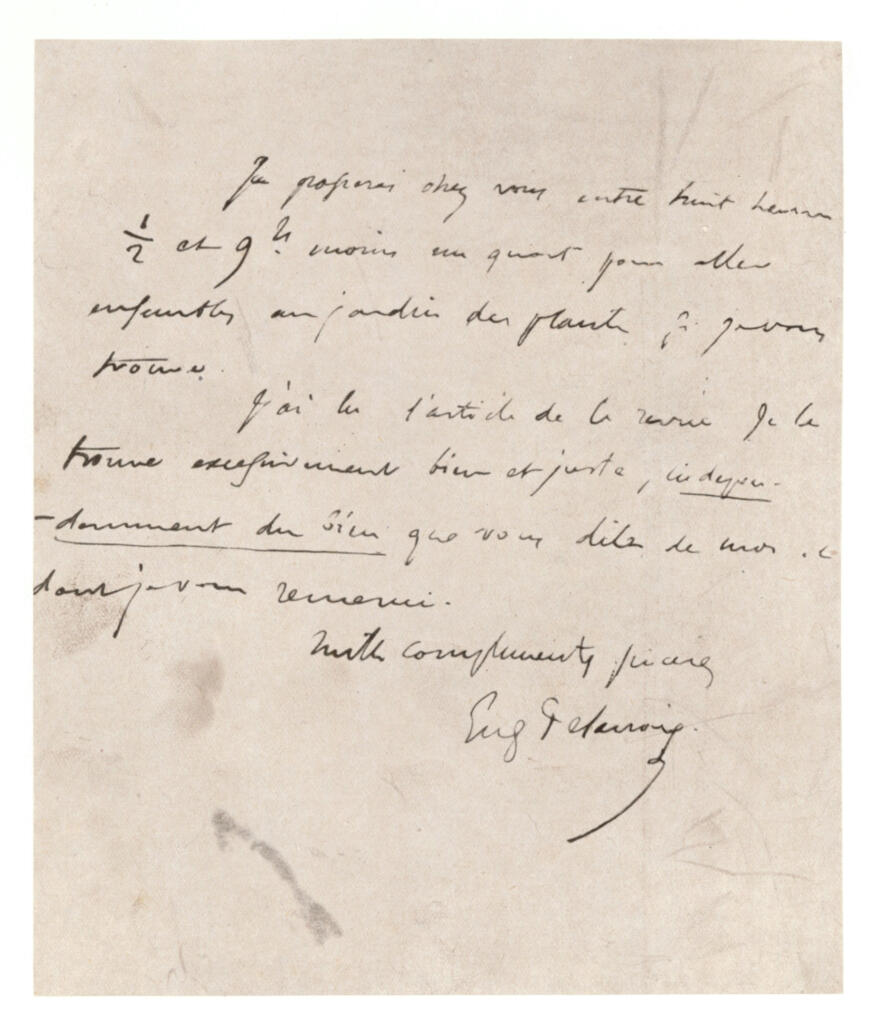 Je passerai chez vous entre huit heures
½ et 9 h. moins un quart pour aller
ensembles au jardin des plantes si je vous
trouve.
J'ai lu l'article de la revue Je le
trouve excessivement bien et juste, indépen-
-damment du bien que vous dites de moi et
dont je vous remercie.
Mille compliments sincères
Eug Delacroix.